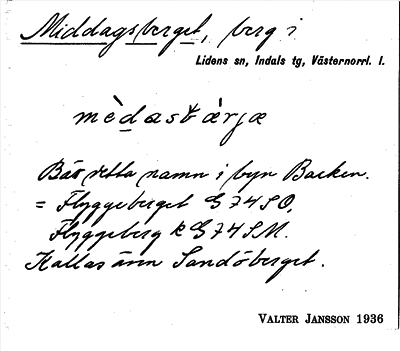 Middagsberget, berg i
Lidens sn, Indals tg, Västernorrl. l.
mèdastærjæ
Bär detta namn i byn Backen.
= Flyggeberget G74SO,
Flyggeberg k G74SM.
Kallas även Sandöberget.
VALTER JANSSON 1936